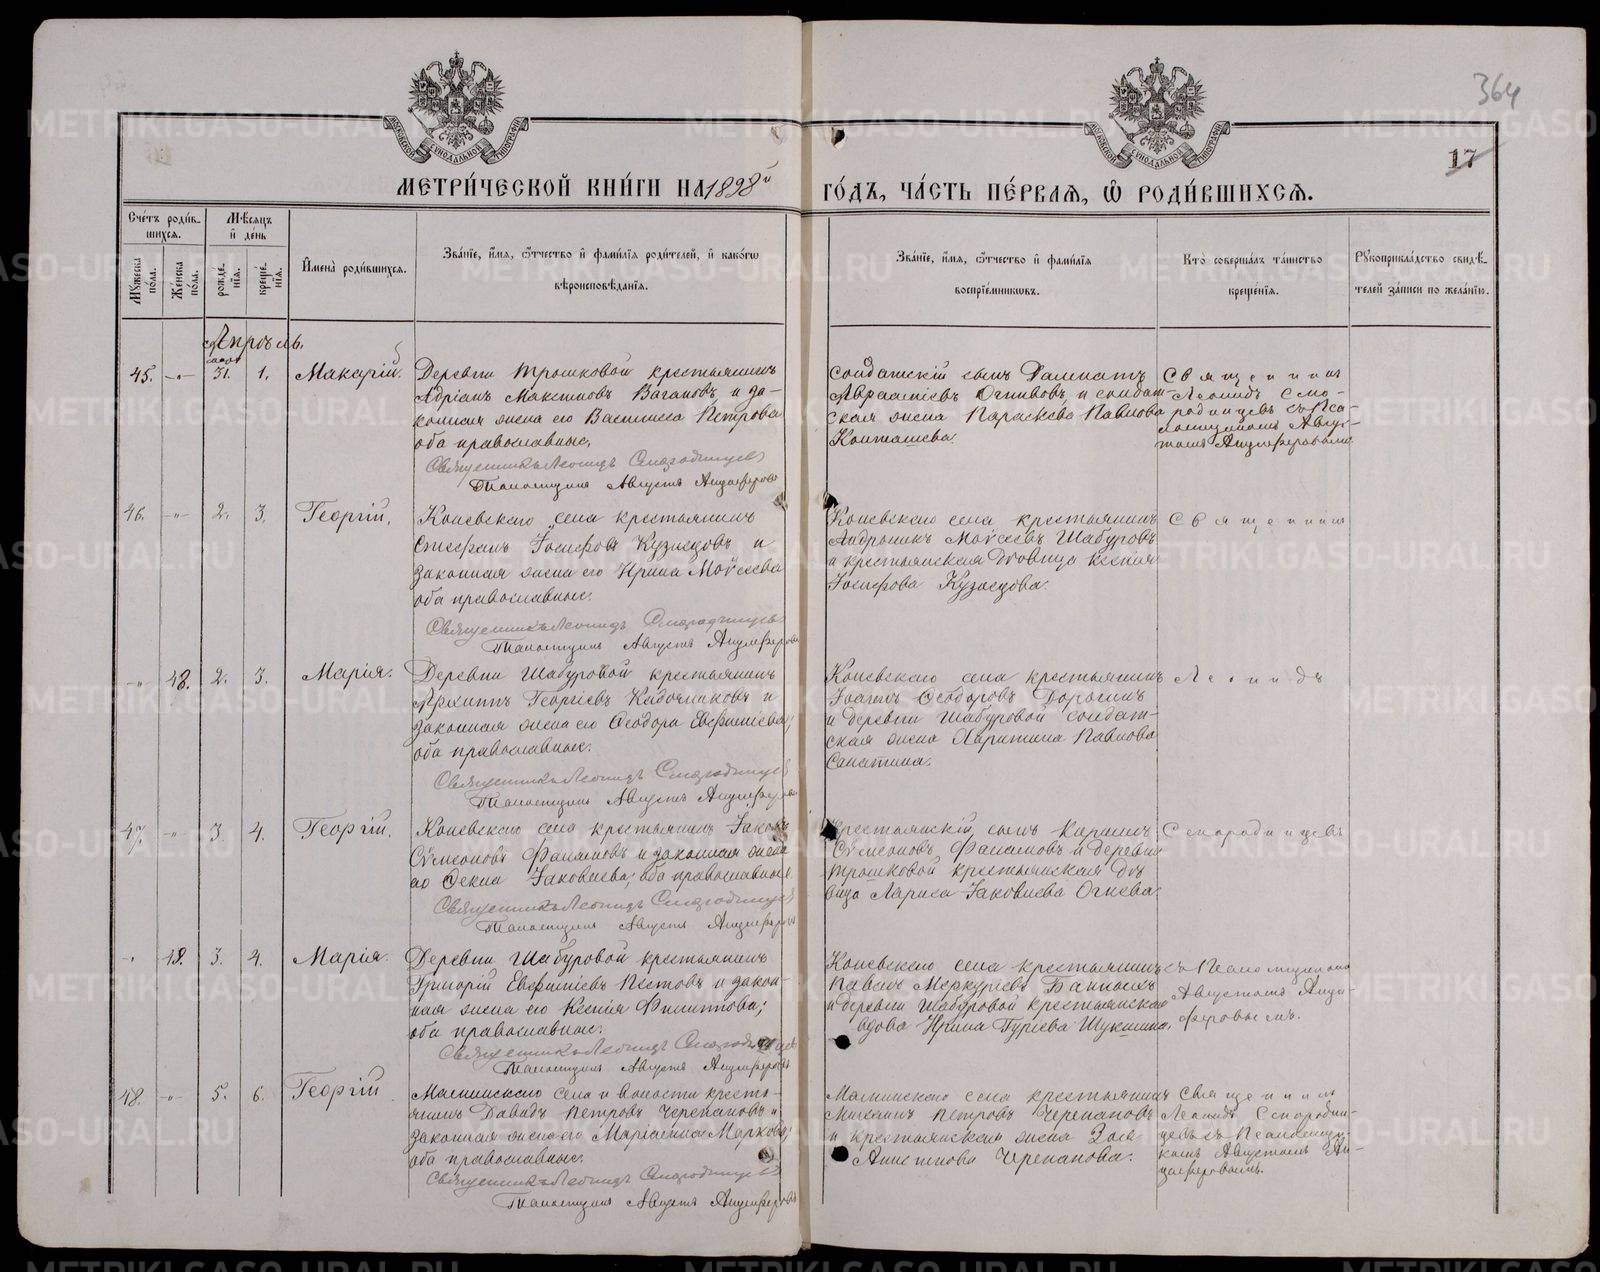 364
17
МОСКОВСКОЙ СѴНОДАЛЬНОЙ ТИПОГРАФІИ
МОСКОВСКОЙ СѴНОДАЛЬНОЙ ТИПОГРАФІИ
МЕТРИ́ЧЕСКОЙ КНИ́ГИ НА 1898й
ГО́ДЪ, ЧА́СТЬ ПЕ́РВАЯ, Ѽ РОДИ́ВШИХСЯ.
Сче́тъ роди́в-
шихся.
Мꙋ́жеска по́ла.
Же́нска по́ла.
Мѣ́сяцъ
и҆ де́нь
рожде́-
нїя.
креще́-
нїя.
И҆мена̀ роди́вшихся.
Зва́нїе, и҆́мя, ѻ҆́тчество и҆ фами́лїя роди́телей, и҆ како́гѡ
вѣроисповѣ́данїя.
Зва́нїе, и҆́мя, ѻ҆́тчество и҆ фами́лїя
воспрїе́мникѡвъ.
Кто̀ соверша́лъ та́инство
креще́нїя.
Рꙋкоприкла́дство свидѣ́-
телей за́писи по жела́нїю.
Апрѣль.
45. -"- 31. 1. Макарій.
Деревни Трошковой крестьянинъ
Адріанъ Макстиовъ Вагановъ и за-
конная жена его Василиса Петрова
оба православные.
Священникъ Леонидъ Смородинцевъ
Псаломщикъ Августъ Анциферовъ
Солдатскій сынъ Далматъ
Авраміевъ Огнивовъ и солдат-
ская жена Параскева Павлова
Конташева.
Священникъ
Леонидъ Смо-
родинцевъ съ Пса-
ломщикомъ Авгус-
томъ Анциферовымъ
46. -"- 2. 3. Георгій.
Коневскаго села крестьянинъ
Стефанъ Іосифовъ Кузнецовъ и
законная жена его Ирина Моѵсеева
оба православные.
Священникъ Леонидъ Смородинцевъ
Псаломщикъ Августъ Анциферовъ
Коневскаго села крестьянинъ
Андроникъ Моѵсеевъ Шабуровъ
и крестьянская дѣвица Ксенія
Іосифова Кузнецова.
Священникъ
-"- 48. 2. 3. Марія.
Деревни Шабуровой крестьянинъ
Архиппъ Георгіевъ Кадочниковъ и
законная жена его Ѳеодора Евфиміева;
оба православные.
Священникъ Леонидъ Смородинцевъ
Псаломщикъ Августъ Анциферовъ
Коневскаго села крестьянинъ
Іоаннъ Ѳеодоровъ Дорогинъ
и деревни Шабуровой солдат-
ская жена Харитина Павлова
Сапегина.
Леонидъ
47. -"- 3. 4. Георгій.
Коневскаго села крестьянинъ Іаковъ
Сѵмеоновъ Фалалеевъ и законная жена
его Ѳекла Іаковлева; оба православные
Священникъ Леонидъ Смородинцевъ
Псаломщикъ Августъ Анциферовъ
Крестьянскій сынъ Карпъ
Сѵмеоновъ Фалалеевъ и деревни
Трошковой крестьянская дѣ-
вица Лариса Іаковлева Огнева.
Смородинцевъ
-"- 49. 3. 4. Марія.
Деревни Шабуровой крестьянинъ
Григорій Евфиміевъ Пестовъ и закон-
ная жена его Ксенія Филиппова;
оба православные.
Священникъ Леонидъ Смородинцевъ
Псаломщикъ Августъ Анциферовъ
Коневскаго села крестьянинъ
Павелъ Меркурьевъ Банныхъ
и деревни Шабуровой крестьянская
вдова Ирина Гурьева Шукшина.
съ Псаломщикомъ
Августомъ Анци-
феровымъ.
48. -"- 5. 6. Георгій
Маминскаго села и волости кресть-
янинъ Давидъ Петровъ Черепановъ и
законная жена его Маріамна Маркова;
оба православные.
Священникъ Леонидъ Смородинцевъ
Псаломщикъ Августъ Анциферовъ
Маминскаго села крестьянинъ
Михаилъ Петровъ Черепановъ
и крестьянская жена Зоя
Анисимова Черепанова.
Священникъ
Леонидъ Смородин-
цевъ съ Псаломщи-
комъ Августомъ Ан-
циферовымъ.
METRIKI.GASO-URAL.RU